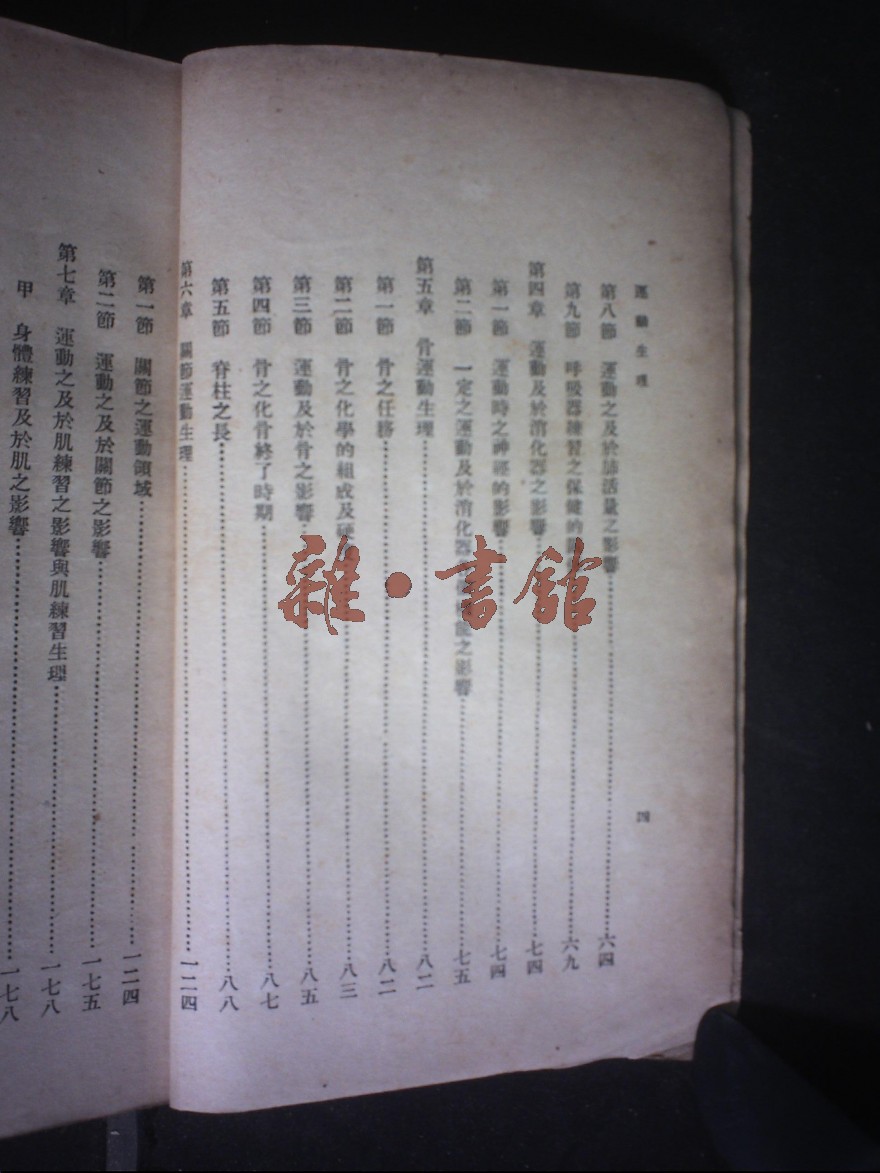 運動生理
四
第八節 運動之及於肺活量之影響 六四
第九節 呼吸器練習之保健的 六九
第四章 運動及於消化器之影響 七四
第一節 運動時之神經的影響 七四
第二節 一定之運動及於消化器 之影響 七五
第五章 骨運動生理 八二
第一節 骨之任務 八二
第二節 骨之化學的組成及硬 八三
第三節 運動及於骨之影響 八五
第四節 骨之化骨終了時期 八七
第五節 脊柱之長 八八
第六章 關節運動生理 一二四
第一節 關節之運動領域 一二四
第二節 運動之及於關節之影響 一七五
第七章 運動之及於肌練習之影響與肌練習生理 一七八
甲 身體練習及於肌之影響 一七八
雜·書館